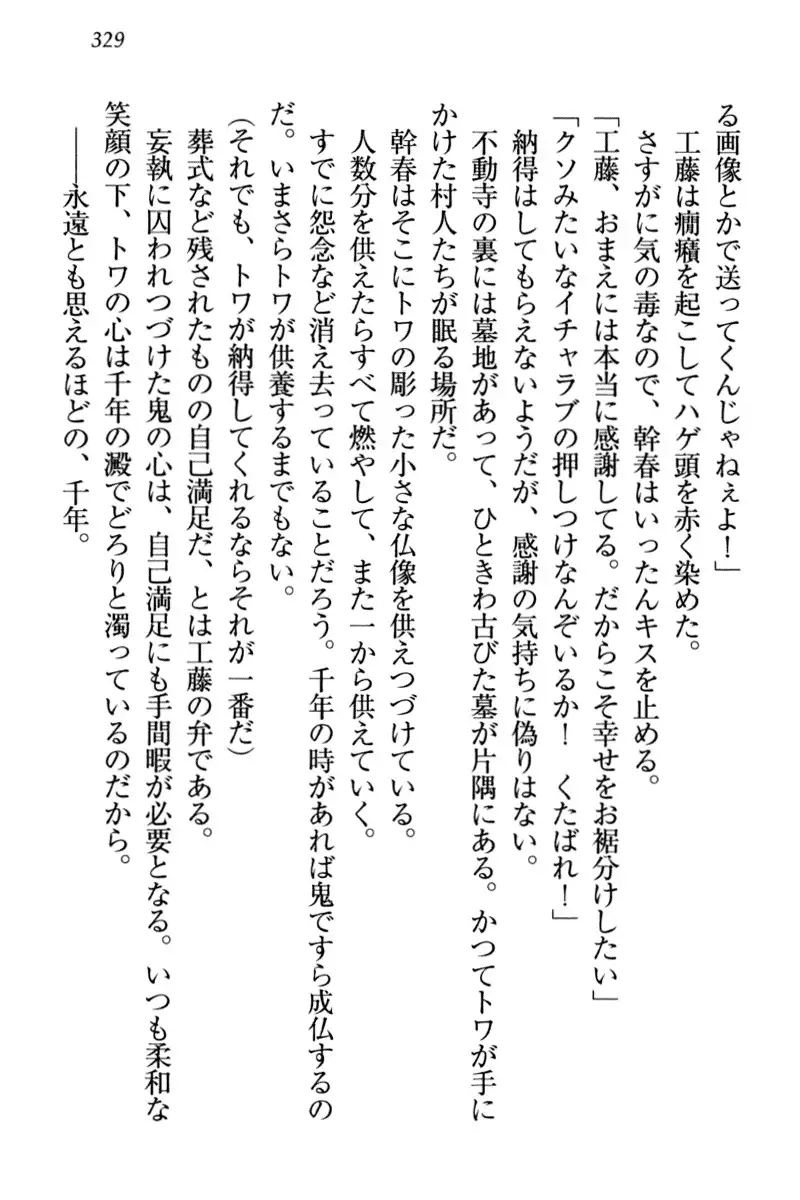 329
る画像とかで送ってくんじゃねぇよ！」
工藤は癇癪を起こしてハゲ頭を赤く染めた。
さすがに気の毒なので、幹春はいったんキスを止める。
「工藤、おまえには本当に感謝してる。だからこそ幸せをお裾分けしたい」
「クソみたいなイチャラブの押しつけなんぞいるか！　くたばれ！」
納得はしてもらえないようだが、感謝の気持ちに偽りはない。
不動寺の裏には墓地があって、ひときわ古びた墓が片隅にある。かつてトワが手に
かけた村人たちが眠る場所だ。
幹春はそこにトワの彫った小さな仏像を供えつづけている。
人数分を供えたらすべて燃やして、また一から供えていく。
すでに怨念など消え去っていることだろう。千年の時があれば鬼ですら成仏するの
だ。いまさらトワが供養するまでもない。
（それでも、トワが納得してくれるならそれが一番だ）
葬式など残されたものの自己満足だ、とは工藤の弁である。
妄執に囚われつづけた鬼の心は、自己満足にも手間暇が必要となる。いつも柔和な
笑顔の下、トワの心は千年の澱でどろりと濁っているのだから。
――永遠とも思えるほどの、千年。